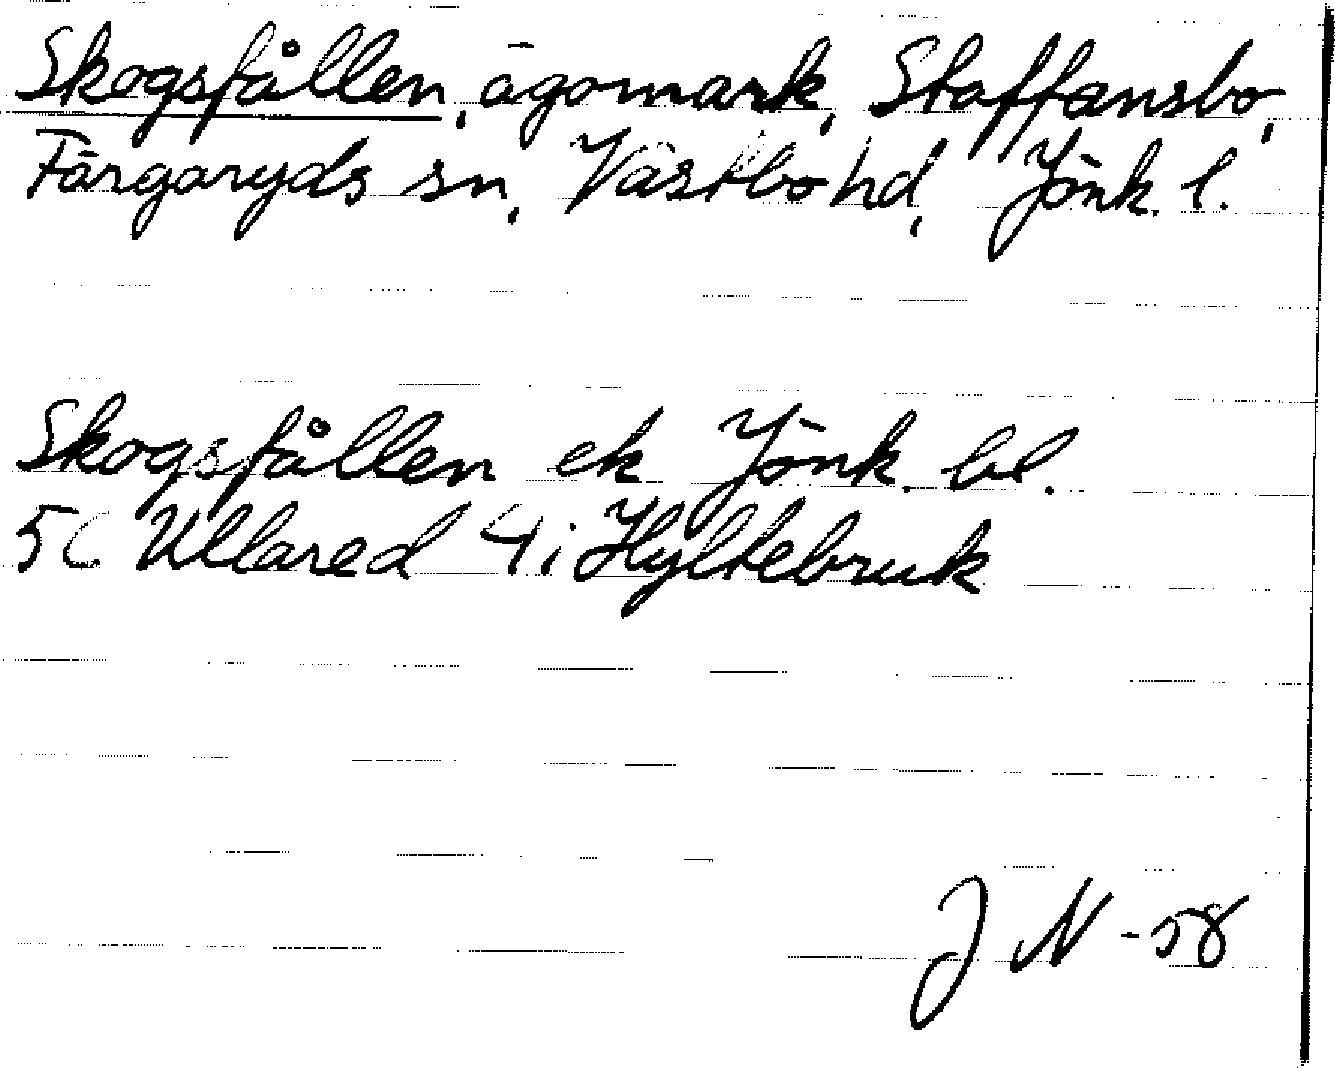 Skogsfållen, ägomark, Staffansbo,
Färgaryds sn, Västbo hd, Jönk. l.
Skogsfållen ek Jönk. bl.
5C Ullared 4i Hyltebruk
J N -58